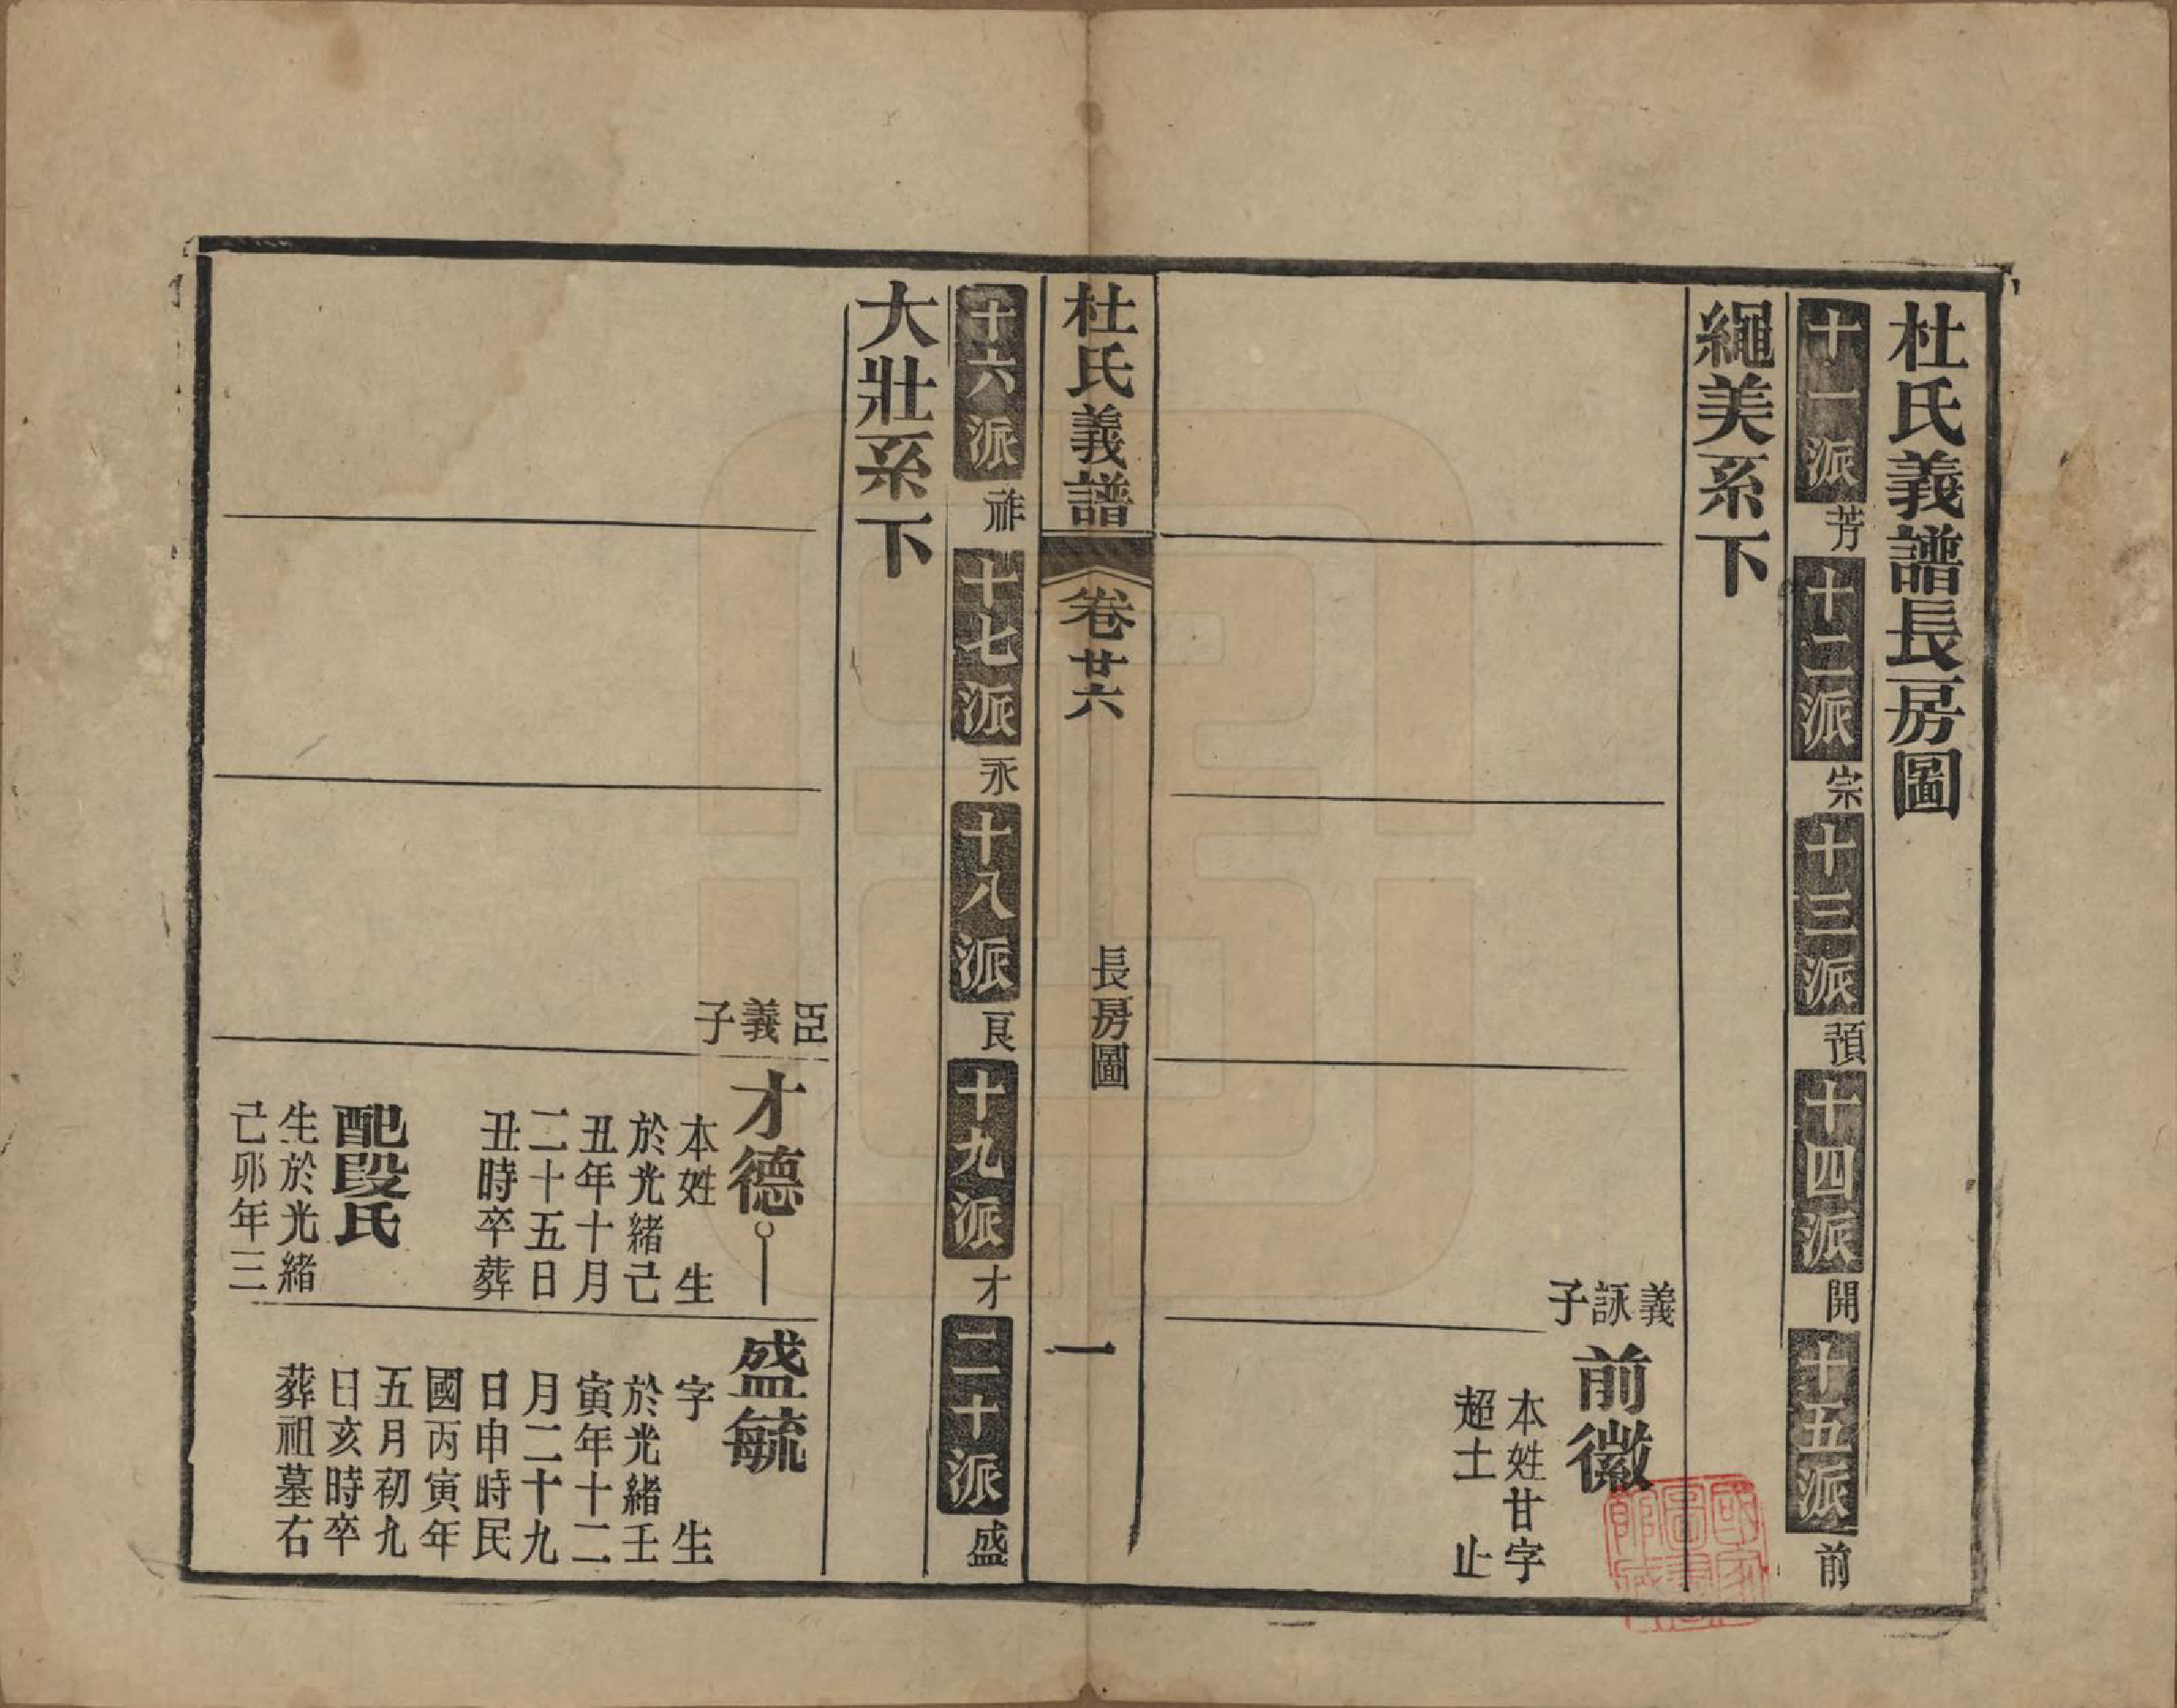 杜氏義譜長房圖
十一派 芳 十二派 宗 十三派 預 十四派 開 十五派 前
繩美系下
義詠子
前徽
本姓甘字
超士 止
杜氏義譜 卷廿六 長房圖 一
十六派 祚 十七派 永 十八派 良 十九派 才 二十派 盛
大壯系下
臣義子
才德
本姓 生
於光緒己
丑年十月
二十五日
丑時卒葬
配段氏
生於光緒
己卯年三
盛毓
字 生
於光緒壬
寅年十二
月二十九
日申時民
國丙寅年
五月初九
日亥時卒
葬祖墓右